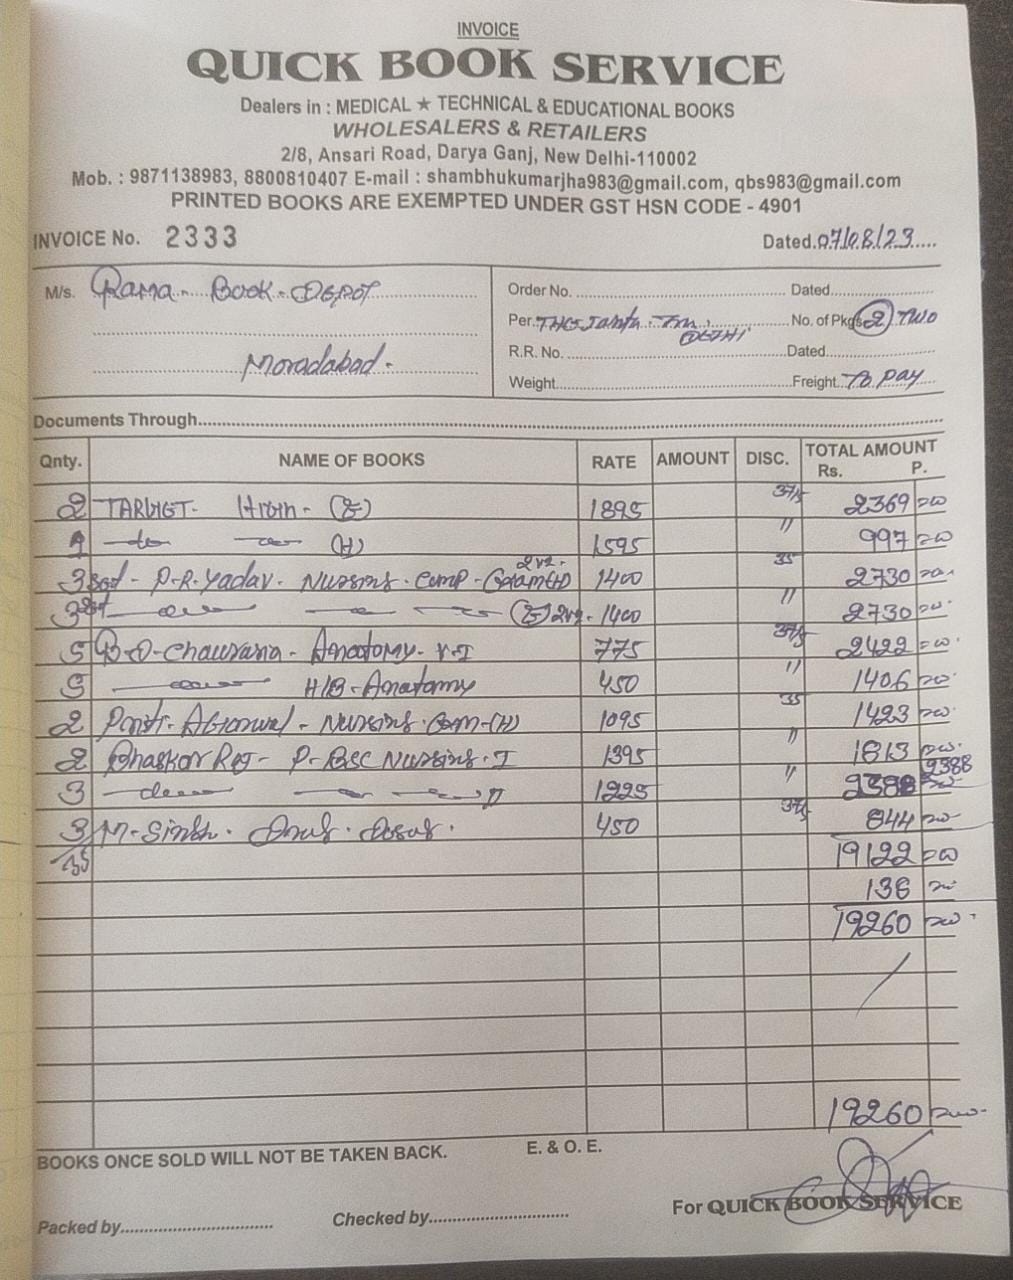 INVOICE
QUICK BOOK SERVICE
Dealers in : MEDICAL ★ TECHNICAL & EDUCATIONAL BOOKS
WHOLESALERS & RETAILERS
2/8, Ansari Road, Darya Ganj, New Delhi-110002
Mob. : 9871138983, 8800810407 E-mail : shambhukumarjha983@gmail.com, qbs983@gmail.com
PRINTED BOOKS ARE EXEMPTED UNDER GST HSN CODE - 4901
INVOICE No. 2333 Dated 07/08/23
M/s. Rama Book Depot
Moradabad
Order No. Dated
Per. No. of Pkgs 2 Two
R.R. No. Dated
Weight Freight To Pay
Documents Through
Qnty. NAME OF BOOKS RATE AMOUNT DISC. TOTAL AMOUNT
Rs. P.
2 TARGET (E) 1895 2369 00
1 (H) 1595 " 997 00
3 P.R. Yadav Nursing Comp (H) 1400 35 2730 00
3 (E) 1400 " 2730 00
5 B.D. Chaurasia Anatomy V-I 775 2422 00
5 H/B Anatomy 450 " 1406 00
2 Agarwal Nursing (H) 1095 35 1423 00
2 Bhaskar Raj P-BSC Nursing I 1395 " 1813 00
3 II 1225 " 2388 9388
3 M. Singh 450 844 00
19122 00
138 00
19260 00
19260 00
BOOKS ONCE SOLD WILL NOT BE TAKEN BACK. E. & O. E.
For QUICK BOOK SERVICE
Packed by Checked by